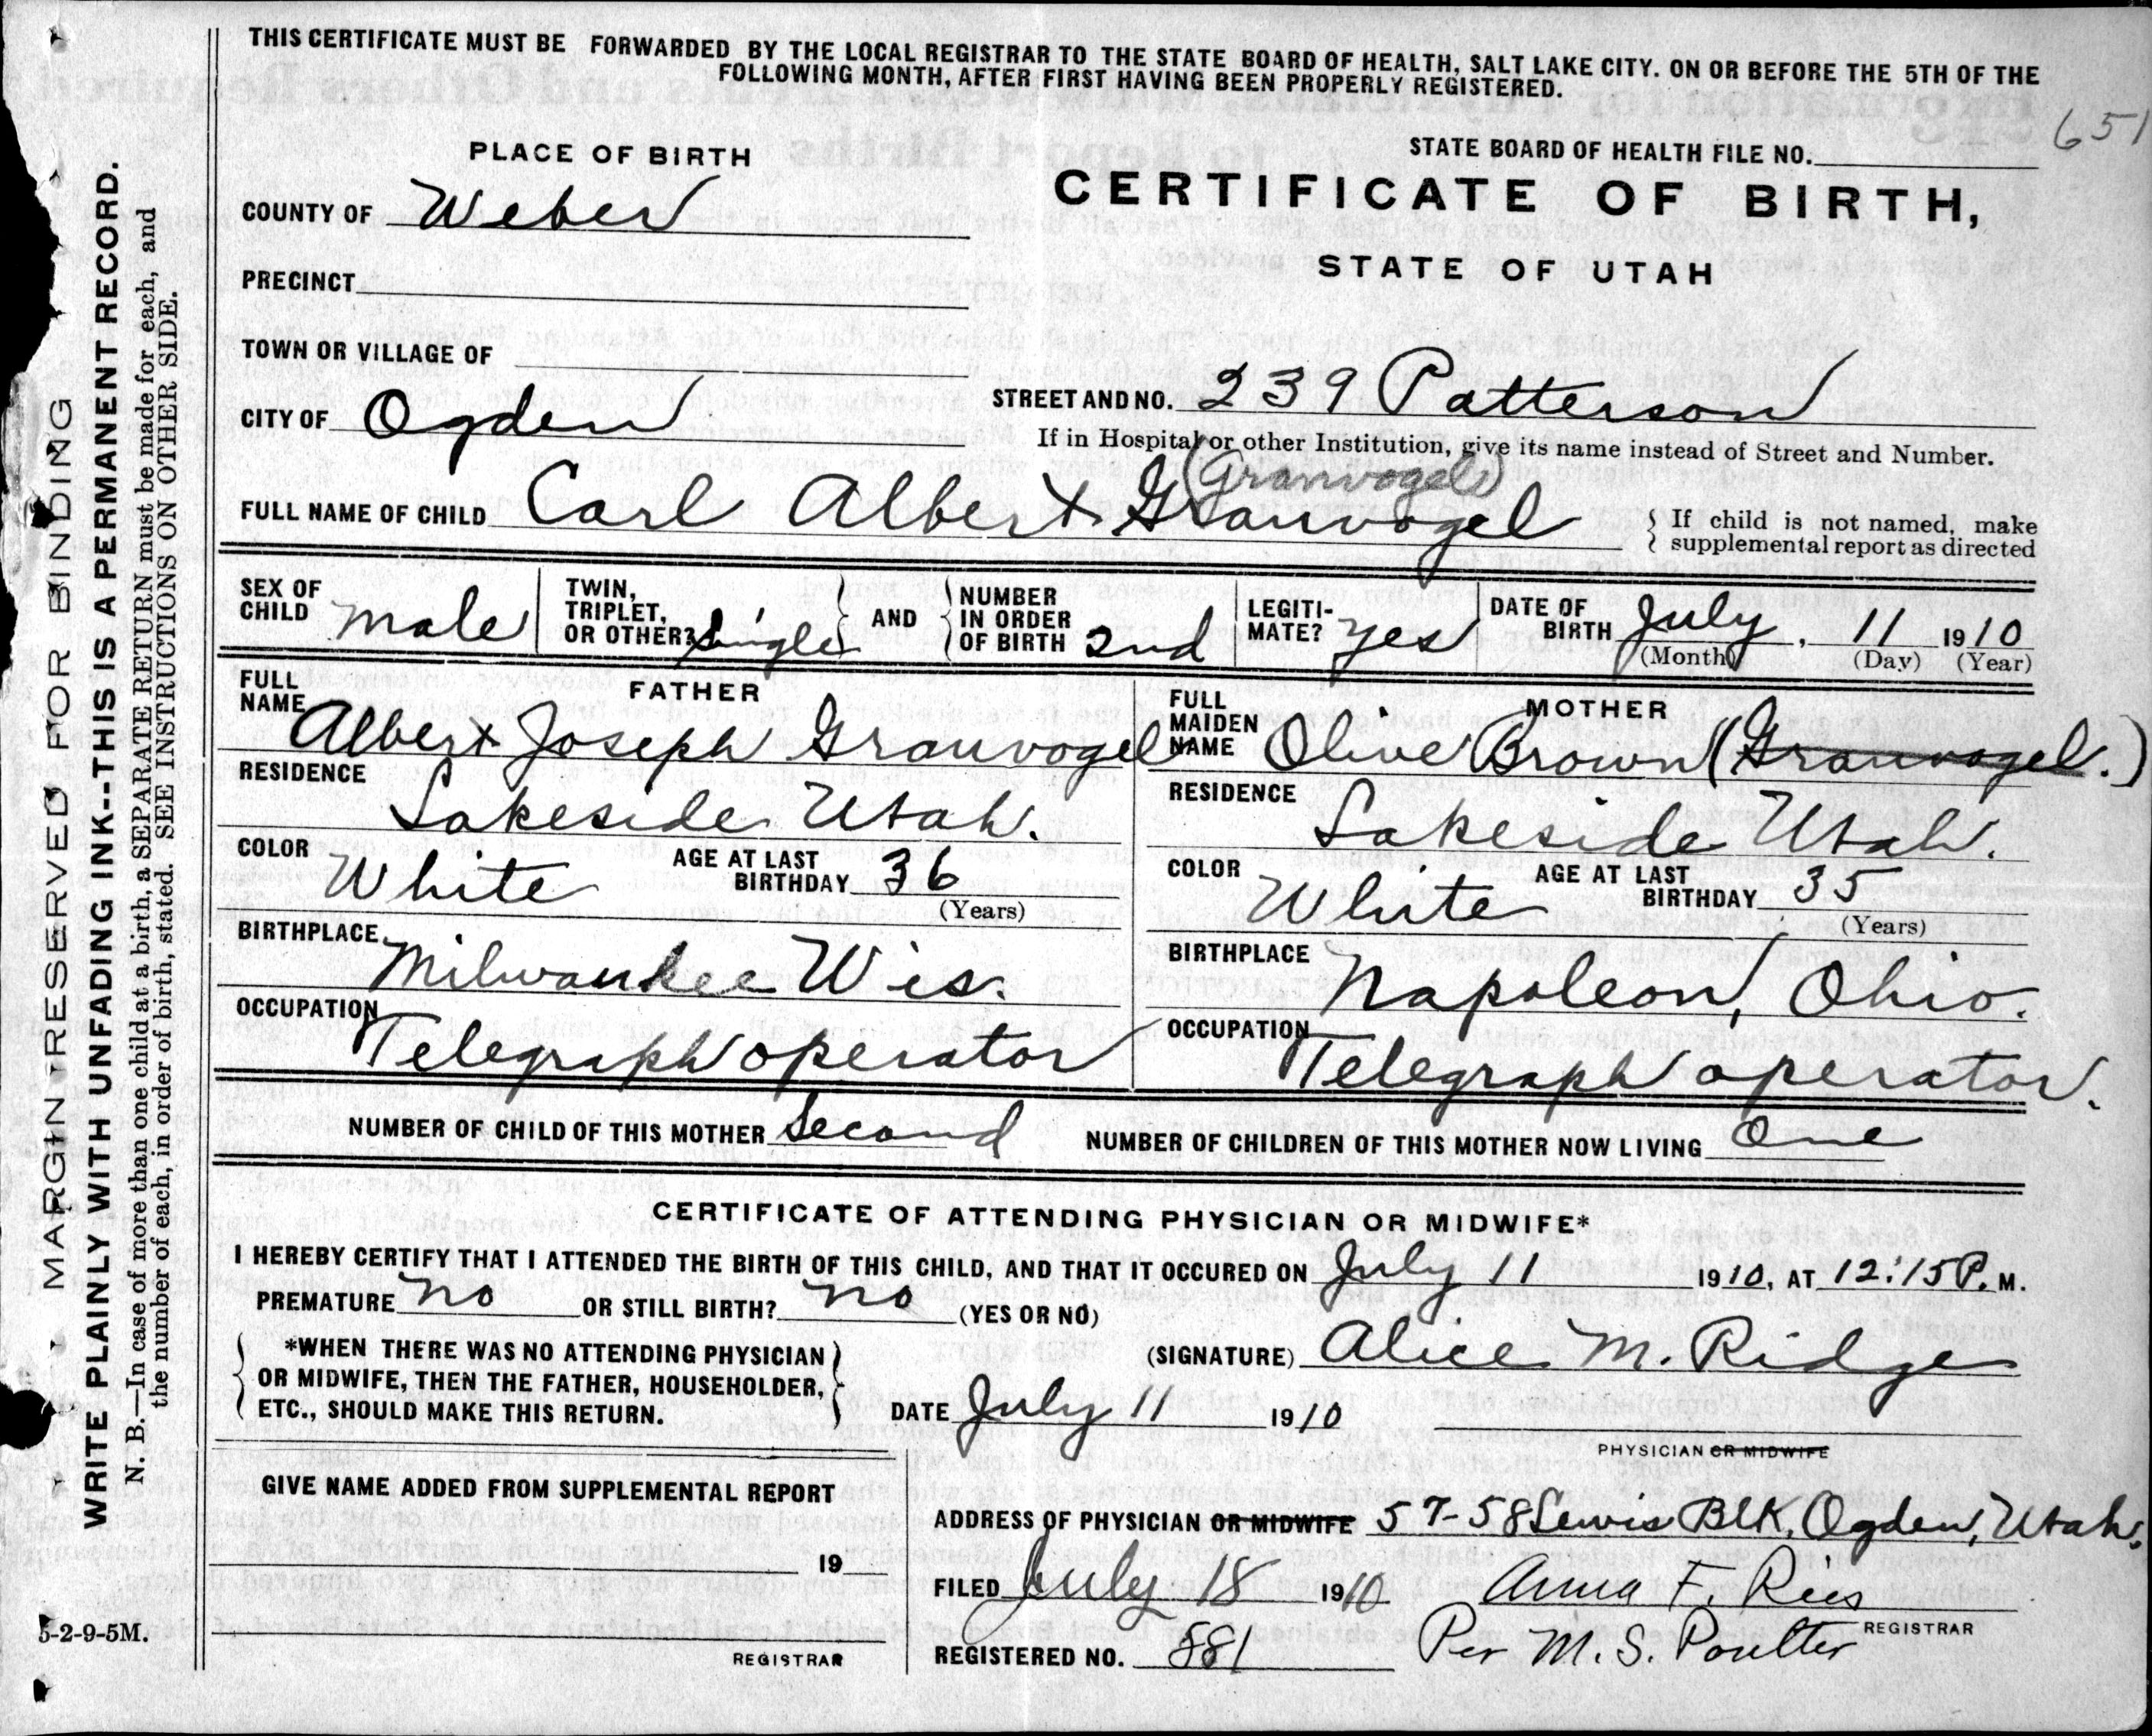 THIS CERTIFICATE MUST BE FORWARDED BY THE LOCAL REGISTRAR TO THE STATE BOARD OF HEALTH, SALT LAKE CITY. ON OR BEFORE THE 5TH OF THE
FOLLOWING MONTH, AFTER FIRST HAVING BEEN PROPERLY REGISTERED.
651
PLACE OF BIRTH
STATE BOARD OF HEALTH FILE NO.
COUNTY OF Weber
CERTIFICATE OF BIRTH,
PRECINCT
STATE OF UTAH
TOWN OR VILLAGE OF
CITY OF Ogden
STREET AND NO. 239 Patterson
If in Hospital or other Institution, give its name instead of Street and Number.
(Granvogel)
FULL NAME OF CHILD Carl Albert Granvogel
If child is not named, make
supplemental report as directed
SEX OF CHILD male
TWIN, TRIPLET, OR OTHER? Single
AND
NUMBER IN ORDER OF BIRTH 2nd
LEGITI-MATE? yes
DATE OF BIRTH July, 11 1910
(Month) (Day) (Year)
FATHER
FULL NAME Albert Joseph Granvogel
RESIDENCE
Lakeside Utah.
COLOR White AGE AT LAST BIRTHDAY 36
(Years)
BIRTHPLACE
Milwaukee Wis.
OCCUPATION
Telegraph operator
MOTHER
FULL MAIDEN NAME Olive Brown (Granvogel.)
RESIDENCE
Lakeside Utah.
COLOR White AGE AT LAST BIRTHDAY 35
(Years)
BIRTHPLACE
Napoleon, Ohio.
OCCUPATION
Telegraph operator.
NUMBER OF CHILD OF THIS MOTHER Second NUMBER OF CHILDREN OF THIS MOTHER NOW LIVING One
CERTIFICATE OF ATTENDING PHYSICIAN OR MIDWIFE*
I HEREBY CERTIFY THAT I ATTENDED THE BIRTH OF THIS CHILD, AND THAT IT OCCURED ON July 11 1910, AT 12:15 P. M.
PREMATURE no OR STILL BIRTH? no (YES OR NO)
*WHEN THERE WAS NO ATTENDING PHYSICIAN
OR MIDWIFE, THEN THE FATHER, HOUSEHOLDER,
ETC., SHOULD MAKE THIS RETURN.
(SIGNATURE) Alice M. Ridge
DATE July 11 1910
PHYSICIAN OR MIDWIFE
GIVE NAME ADDED FROM SUPPLEMENTAL REPORT
19
REGISTRAR
ADDRESS OF PHYSICIAN OR MIDWIFE 57-58 Lewis Blk, Ogden, Utah.
FILED July 18 1910 Anna F. Ries
REGISTRAR
REGISTERED NO. 881 Per M. S. Poulter
5-2-9-5M.
MARGIN RESERVED FOR BINDING
WRITE PLAINLY WITH UNFADING INK--THIS IS A PERMANENT RECORD.
N. B.—In case of more than one child at a birth, a SEPARATE RETURN must be made for each, and
the number of each, in order of birth, stated. SEE INSTRUCTIONS ON OTHER SIDE.